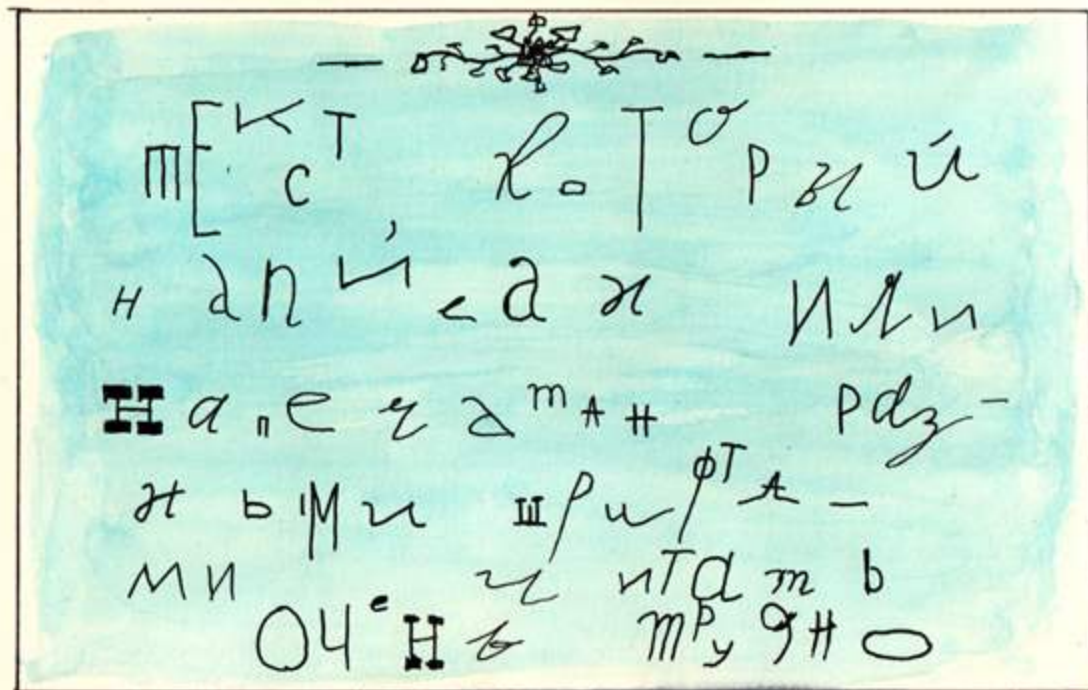 тЕКСТ, который
напиСан или
Напечатан раз-
ными шрифта-
ми читать
ОЧеНь трудно